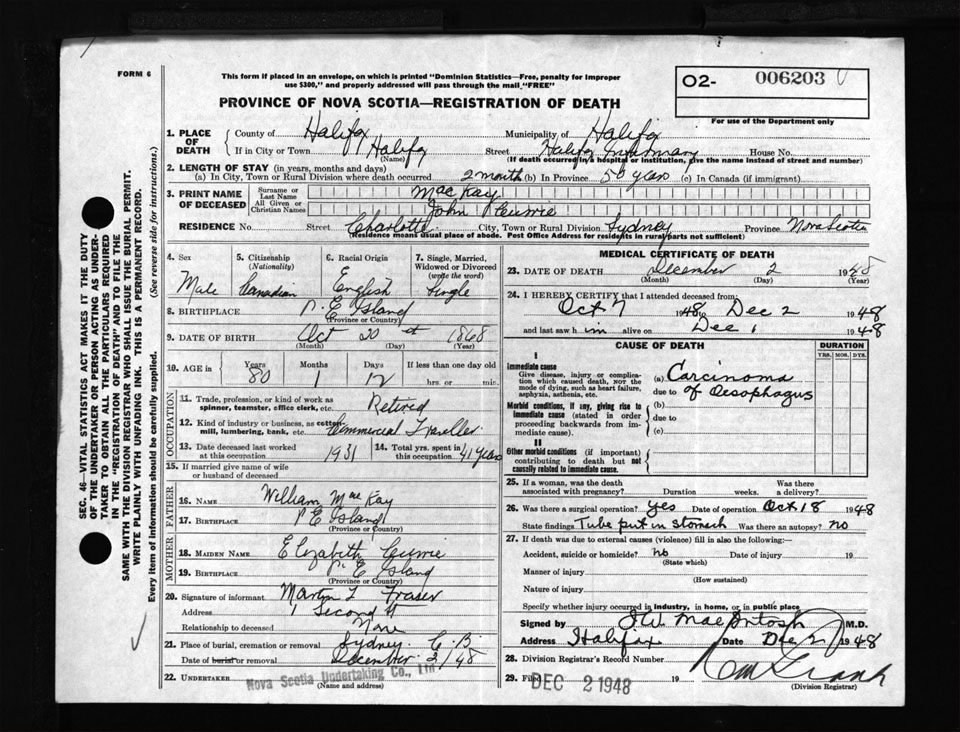 FORM 6
This form if placed in an envelope, on which is printed "Dominion Statistics—Free, penalty for improper
use $300," and properly addressed will pass through the mail "FREE"
02- 006203
PROVINCE OF NOVA SCOTIA—REGISTRATION OF DEATH
For use of the Department only
1. PLACE OF DEATH County of Halifax Municipality of Halifax
If in City or Town Halifax Street Halifax Infirmary House No.
(Name) (If death occurred in a hospital or institution, give the name instead of street and number)
2. LENGTH OF STAY (in years, months and days)
(a) In City, Town or Rural Division where death occurred 2 month (b) In Province 50 years (c) In Canada (if immigrant)
3. PRINT NAME OF DECEASED Surname or Last Name MacKay
All Given or Christian Names John Currie
RESIDENCE No. Street Charlotte City, Town or Rural Division Sydney Province Nova Scotia
(Residence means usual place of abode. Post Office Address for residents in rural parts not sufficient)
4. Sex Male
5. Citizenship (Nationality) Canadian
6. Racial Origin English
7. Single, Married, Widowed or Divorced (write the word) Single
8. BIRTHPLACE P. E Island
(Province or Country)
9. DATE OF BIRTH Oct 20st 1868
(Month) (Day) (Year)
10. AGE in Years 80 Months 1 Days 12 If less than one day old
hrs. or min.
OCCUPATION
11. Trade, profession, or kind of work as spinner, teamster, office clerk, etc. Retired
12. Kind of industry or business, as cotton mill, lumbering, bank, etc. Commercial Traveller
13. Date deceased last worked at this occupation 1931
14. Total yrs. spent in this occupation 41 years
15. If married give name of wife or husband of deceased
FATHER
16. NAME William MacKay
17. BIRTHPLACE P E Island
(Province or Country)
MOTHER
18. MAIDEN NAME Elizabeth Currie
19. BIRTHPLACE P. E Island
(Province or Country)
20. Signature of informant Martin L Fraser
Address 1 Second St
Relationship to deceased None
21. Place of burial, cremation or removal Sydney C. B.
Date of burial or removal December 3/48
22. UNDERTAKER Nova Scotia Undertaking Co., Ltd
(Name and address)
MEDICAL CERTIFICATE OF DEATH
23. DATE OF DEATH December 2 1948
(Month) (Day) (Year)
24. I HEREBY CERTIFY that I attended deceased from:
Oct 7 1948 to Dec 2 1948
and last saw him alive on Dec 1 1948
CAUSE OF DEATH
DURATION
YRS. MOS. DYS.
I
Immediate cause
Give disease, injury or complication which caused death, NOT the mode of dying, such as heart failure, asphyxia, asthenia, etc.
(a) Carcinoma
due to of Oesophagus
Morbid conditions, if any, giving rise to immediate cause (stated in order proceeding backwards from immediate cause).
(b)
due to
(c)
II
Other morbid conditions (if important) contributing to death but not causally related to immediate cause.
25. If a woman, was the death associated with pregnancy? Duration weeks. Was there a delivery?
26. Was there a surgical operation? Yes Date of operation Oct 18 1948
State findings Tube put in stomach Was there an autopsy? No
27. If death was due to external causes (violence) fill in also the following:—
Accident, suicide or homicide? No Date of injury 19
(State which)
Manner of injury
(How sustained)
Nature of injury
Specify whether injury occurred in industry, in home, or in public place
Signed by MacIntosh M.D.
Address Halifax Date Dec 2 1948
28. Division Registrar's Record Number
29. Filed DEC 2 1948 19
(Division Registrar)
SEC. 46—VITAL STATISTICS ACT MAKES IT THE DUTY
OF THE UNDERTAKER OR PERSON ACTING AS UNDER-
TAKER TO OBTAIN ALL THE PARTICULARS REQUIRED
IN THE "REGISTRATION OF DEATH" AND TO FILE THE
SAME WITH THE DIVISION REGISTRAR WHO SHALL ISSUE THE BURIAL PERMIT.
WRITE PLAINLY WITH UNFADING INK. THIS IS A PERMANENT RECORD.
Every item of information should be carefully supplied. (See reverse side for instructions.)